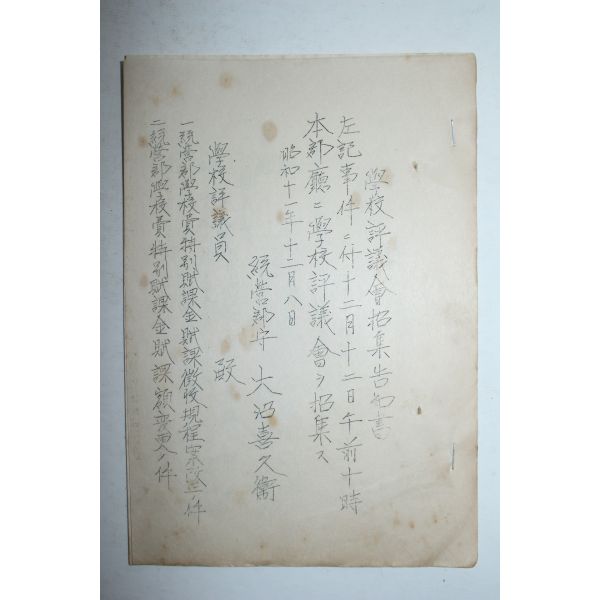 學校評議會招集告知書
左記事件ニ付十二月十二日午前十時
本郡廳ニ學校評議會ヲ招集ス
昭和十一年十二月八日
統營郡守 大沼喜久衛
學校評議員 殿
一統營郡學校費特別賦課金賦課徵收規程案改正ノ件
二統營郡學校費特別賦課金賦課額變更ノ件